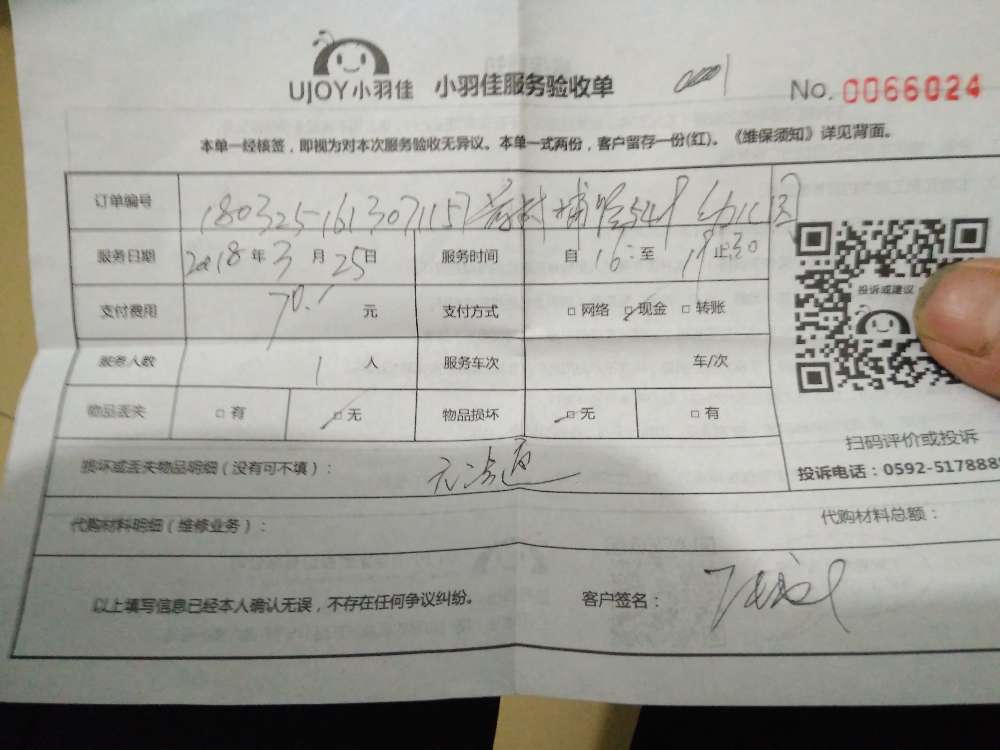 UJOY小羽佳 小羽佳服务验收单 No. 0066024
本单一经核签，即视为对本次服务验收无异议。本单一式两份，客户留存一份(红)。《维保须知》详见背面。
订单编号 180325-1613071151
服务日期 2018年3月25日 服务时间 自16:至
支付费用 70. 元 支付方式 □网络 □现金 □转账
服务人数 1人 服务车次 车/次
物品丢失 □有 □无 物品损坏 □无 □有
投诉或建议
扫码评价或投诉
投诉电话：0592-5178888
损坏或丢失物品明细（没有可不填）：
代购材料明细（维修业务）： 代购材料总额：
以上填写信息已经本人确认无误，不存在任何争议纠纷。 客户签名：